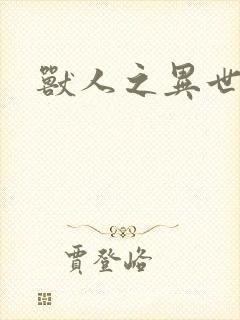 獸人之異世
賈登峪